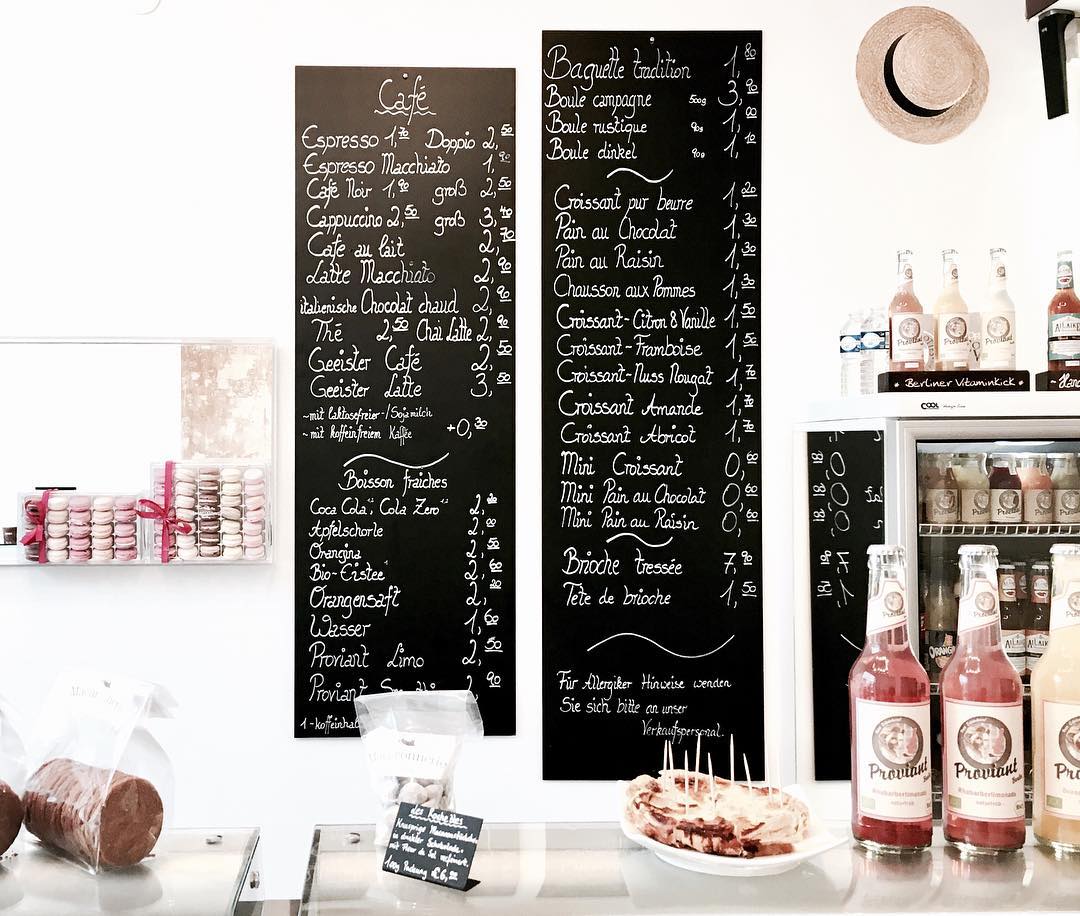 Café
Espresso 1,70 Doppio 2,50
Espresso Macchiato 1,90
Café Noir 1,90 groß 2,50
Cappuccino 2,50 groß 3,40
Cafe au lait 2,70
Latte Macchiato 2,90
italienische Chocolat chaud 2,90
Thé 2,50 Chai Latte 2,90
Geeister Café 2,50
Geeister Latte 3,50
~mit laktosefreier-/Sojamilch
~mit koffeinfreiem Kaffee +0,30
Boisson fraiches
Coca Cola, Cola Zero 2,
Apfelschorle 2,
Orangina 2,50
Bio-Eistee 2,60
Orangensaft 2,20
Wasser 1,60
Proviant Limo 2,50
Proviant 2,90
1-koffeinhal
Baguette tradition 1,80
Boule campagne 500g 3,90
Boule rustique 1,
Boule dinkel 1,10
Croissant pur beurre 1,20
Pain au Chocolat 1,30
Pain au Raisin 1,30
Chausson aux Pommes 1,30
Croissant-Citron & Vanille 1,50
Croissant-Framboise 1,50
Croissant-Nuss Nougat 1,70
Croissant Amande 1,70
Croissant Abricot 1,70
Mini Croissant 0,60
Mini Pain au Chocolat 0,60
Mini Pain au Raisin 0,60
Brioche tressée 7,90
Tête de brioche 1,50
Für Allergiker Hinweise wenden
Sie sich bitte an unser
Verkaufspersonal.
Proviant
Proviant
Proviant
~ Berliner Vitaminkick ~
COOL
Proviant
Rhabarberlimonade
Proviant
Rhabarberlimonade
1,00g Packung € 6,90